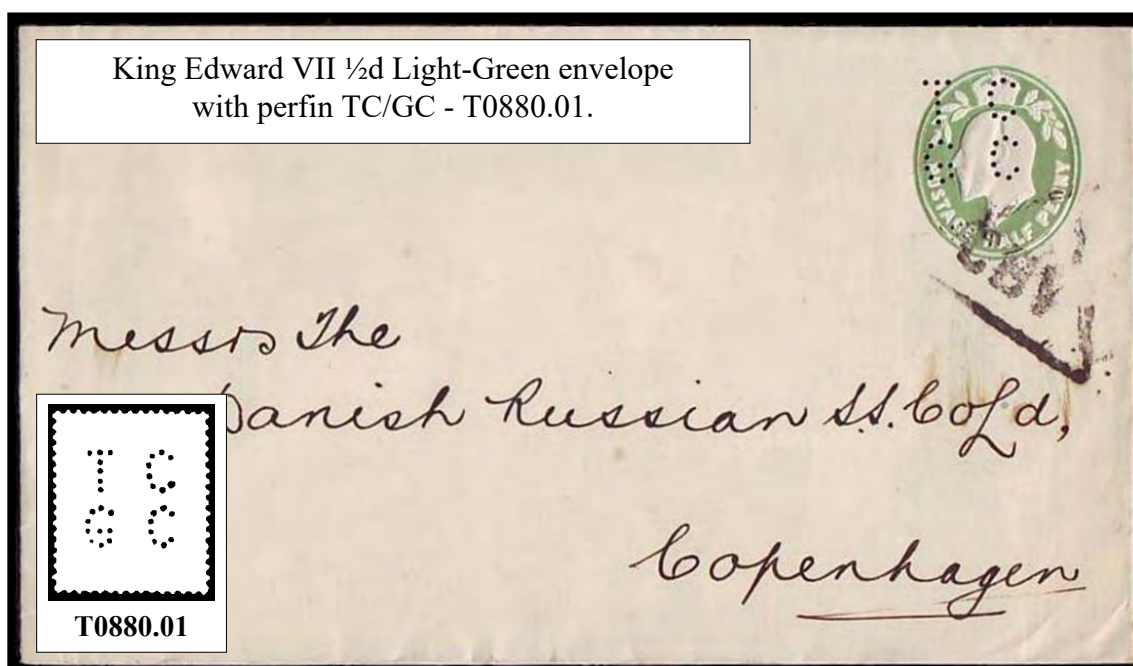 King Edward VII ½d Light-Green envelope
with perfin TC/GC - T0880.01.
T C
G C
POSTAGE HALF PENNY
Messrs The
Danish Russian SS. Co Ld,
Copenhagen
T C
G C
T0880.01